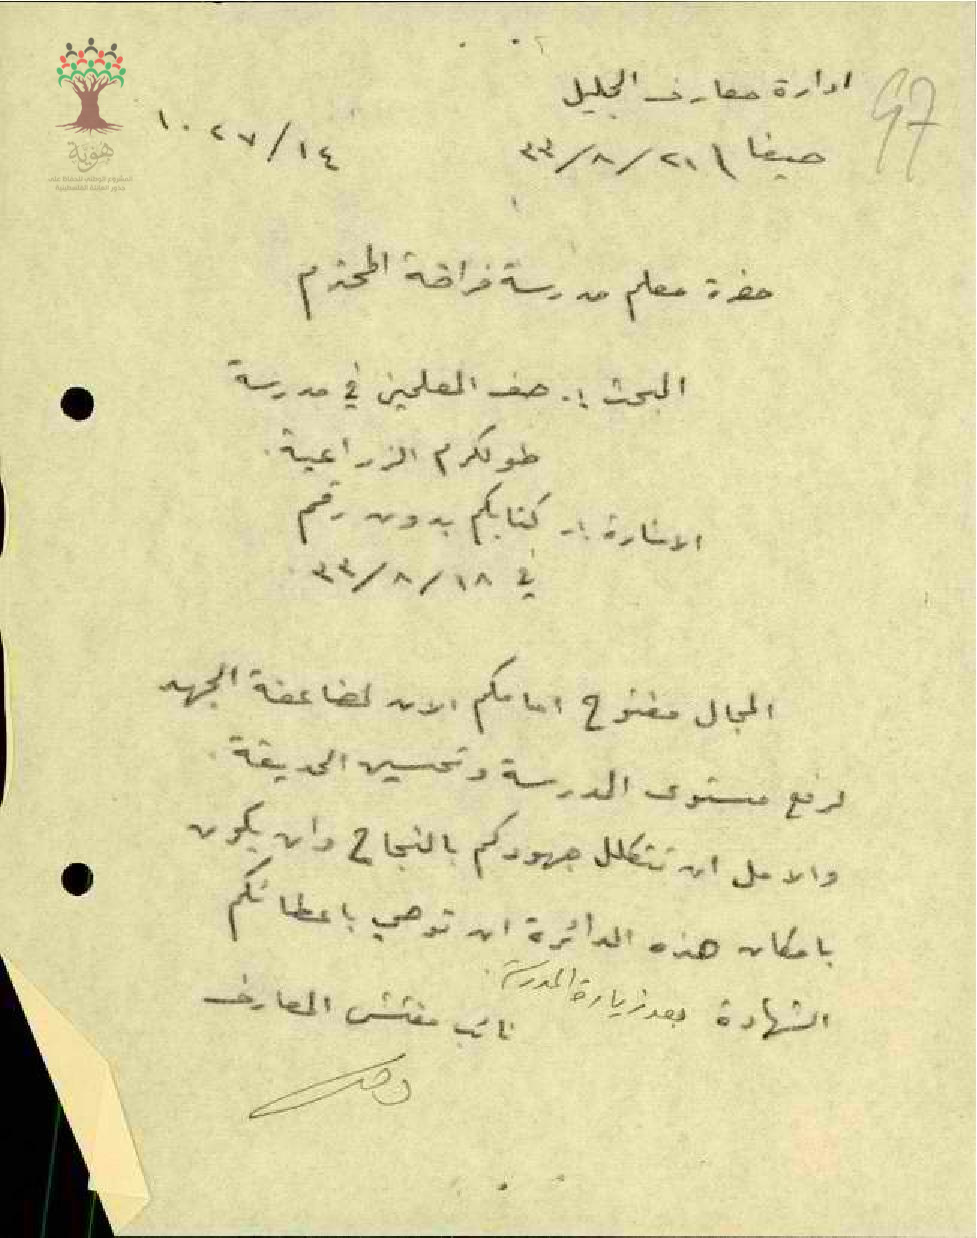 97
ادارة معارف الجليل
حيفا \ ٢١/٨/٣٣
١٠٢٧/١٤
حضرة معلم مدرسة فراضة المحترم
البحث :. صف المعلمين في مدرسة
طولكرم الزراعية.
الاشارة :. كتابكم بدون رقم
في ١٨/٨/٣٣
المجال مفتوح امامكم الان لمضاعفة الجهد
لرفع مستوى المدرسة وتحسين الحديقة.
والامل ان تتكلل جهودكم بالنجاح وان يكون
بامكان هذه الدائرة ان توصي باعطائكم
الشهادة بعد زيارة المدرسة.
نائب مفتش المعارف
هوية
المشروع الوطني للحفاظ على
جذور العائلة الفلسطينية